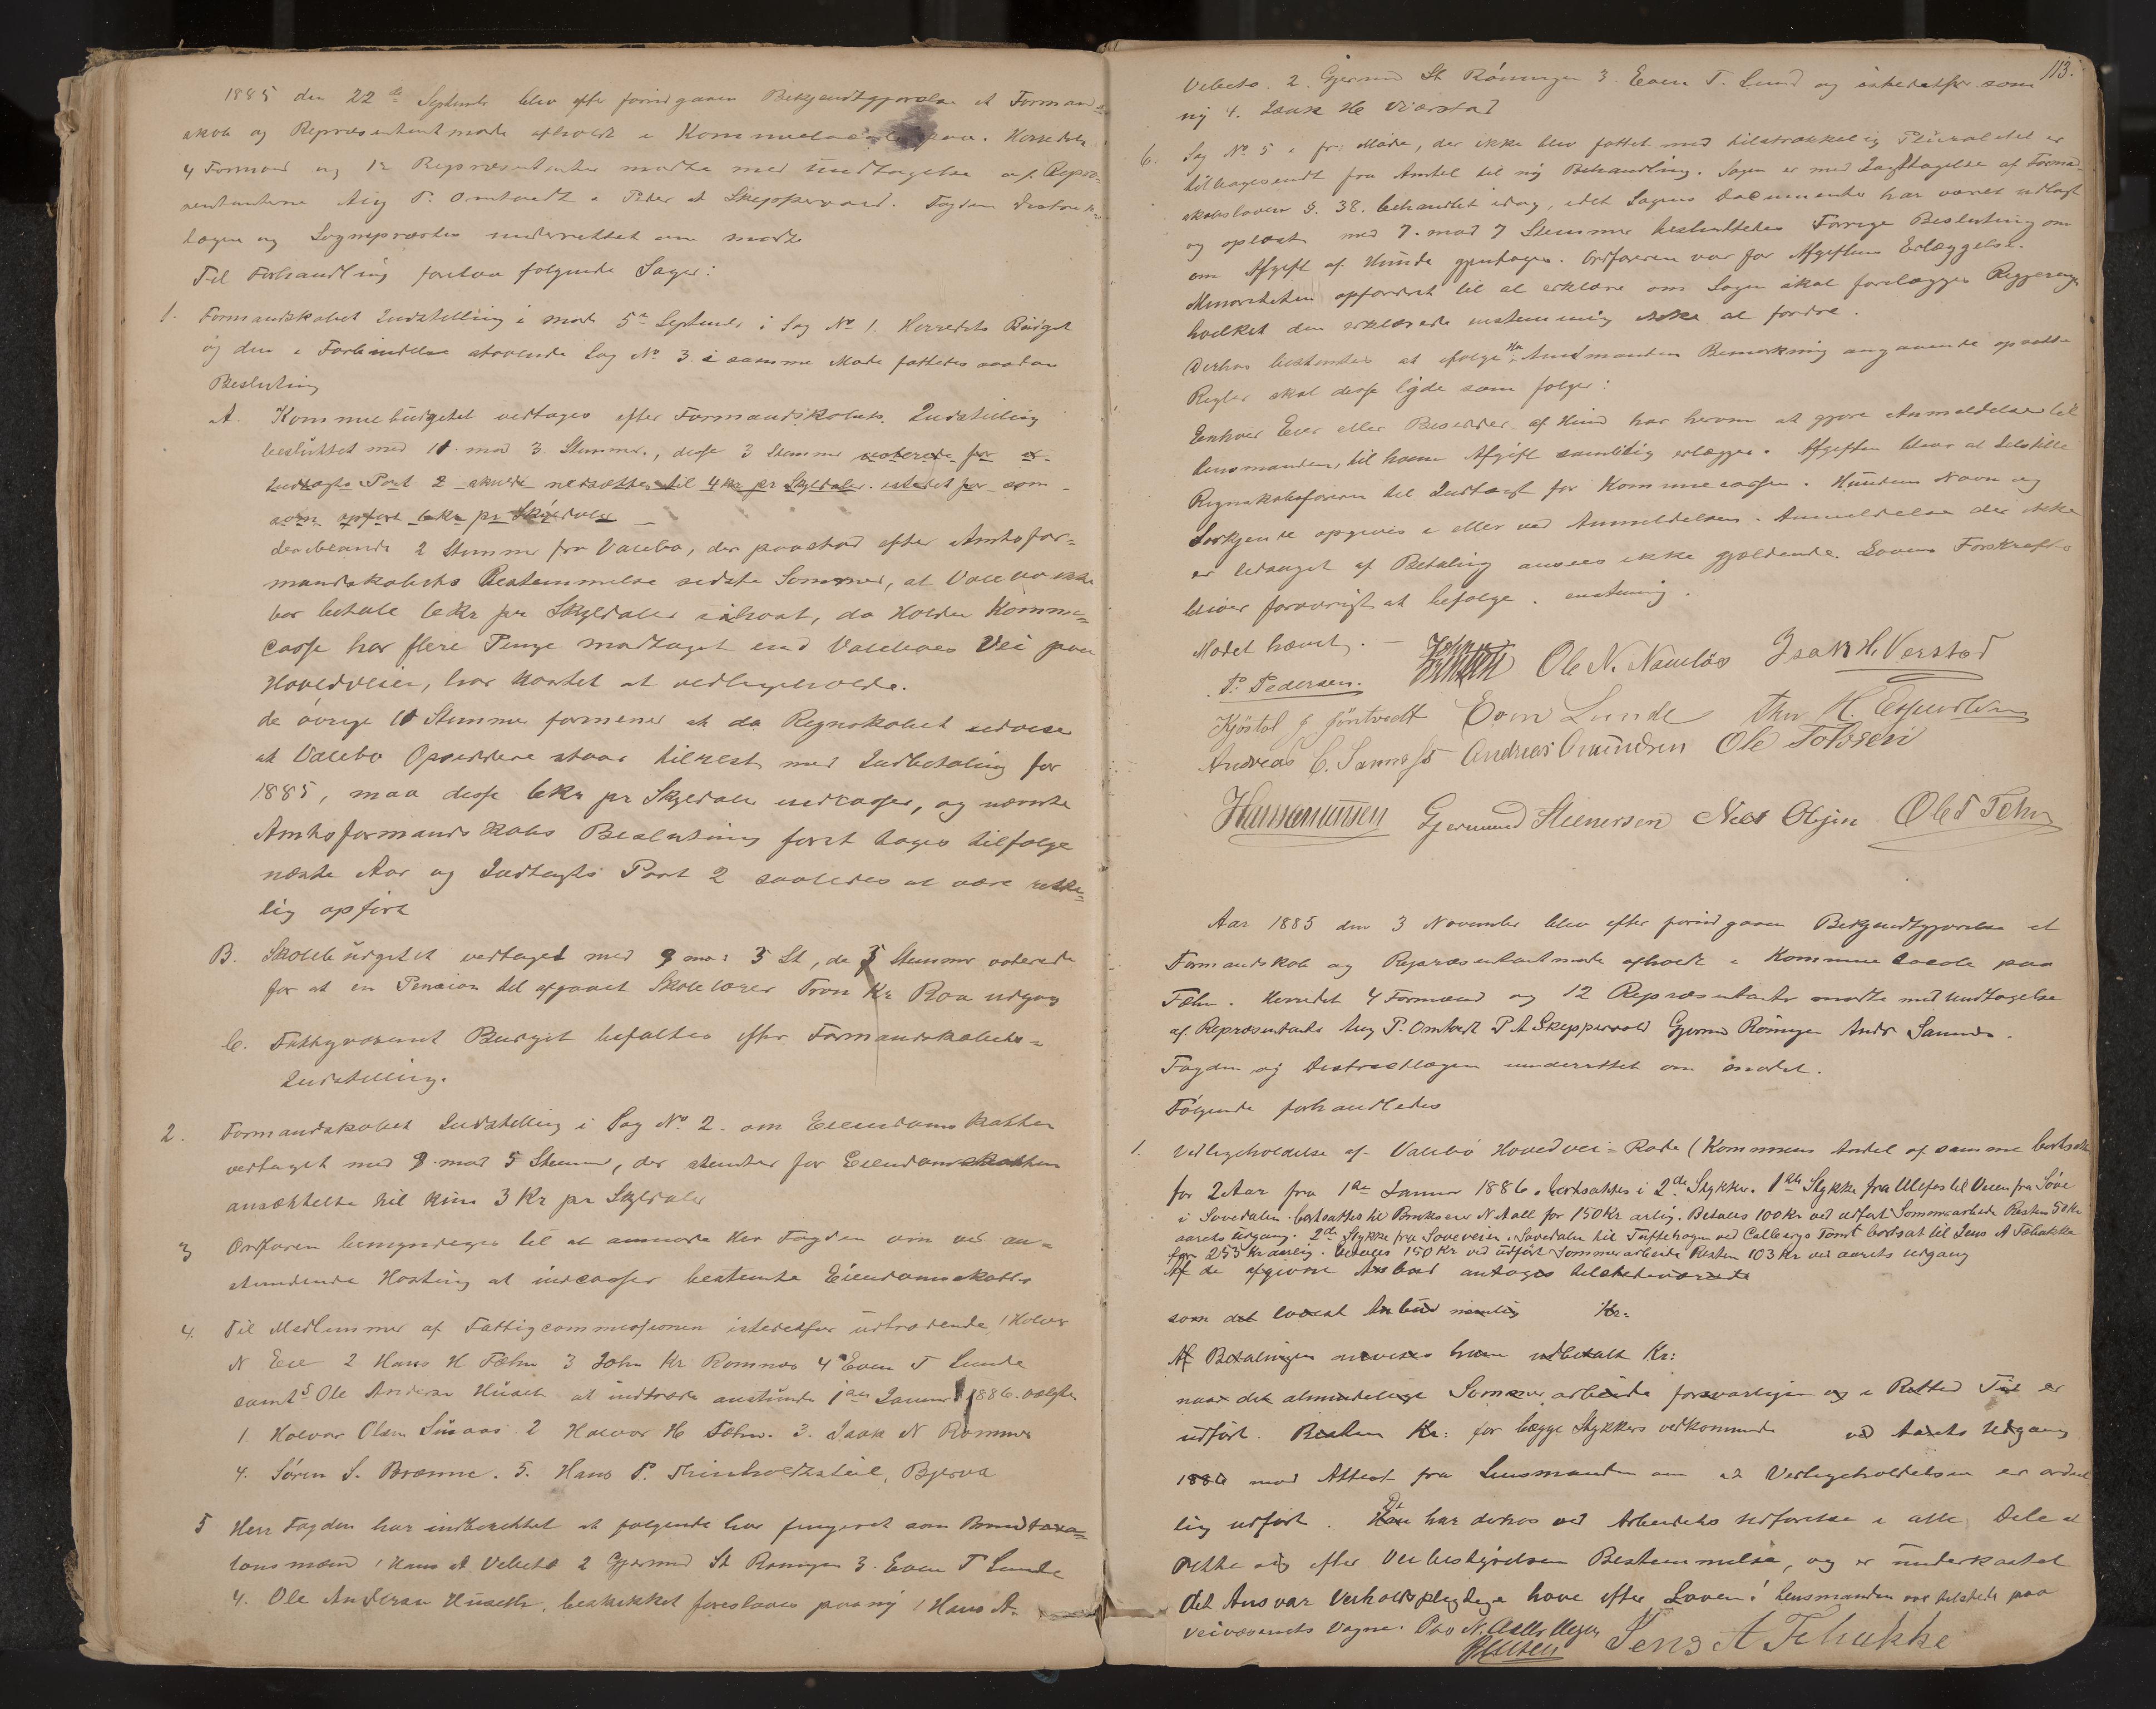 1885 den 22de Septembr blev efter forudgaaen Bekjendtgjørelse et Formand-
skab og Repræsentantmøde afholdt i Kommune paa. Herredets
4 Formænd og 12 Repræsentanter mødte med Undtagelse af Repræ-
sentanterne Aug P. Omtvedt & Peter A Skeppervold. Fogden Distrikts-
lægen og Sognepræsten underrettet om mødet
Til Forhandling foretoges følgende Sager:
1. Formandskabets Indstilling i møde 5te Septembr i Sag No 1. Herredets Büdget
og den i Forbindelse staaende Sag No 3 i samme Møde fattedes saadan
Beslutning
A. Kommunebüdgetet vedtages efter Formandskabets Indstilling
besluttet med 11 mod 3 Stemmer, disse 3 Stemmer voterede for at
Indtægts Post 2 skulde nedsættes til 4 Kr pr Skyldaler istedet for som
som opført 6 Kr pr Skyldaler
deriblandt 2 Stemmer fra Valebø, der paastod efter Amtsfor=
mandskabets Bestemmelse sidste Sommer, at Valebø ikke
bør betale 6 Kr pr Skyldaler iaboat, da Holden Kommu=
casse har flere Penge modtaget end Valebøes Vei paa
Hovedveien, har kostet at vedligeholde.
de øvrige 11 Stemmer formener at da Regnskabet udviser
at Valebø Opsiddere staar tilrest med Indbetaling for
1885, maa disse 6 Kr pr Skyldaler indcasser, og nævnte
Amtsformandskabs Beslutning først tages tilfølge
næste Aar og Indtægts Post 2 saaledes at være rette=
lig opført
B. Skolebüdgetet vedtaget med 9 mod 5 St, de 5 Stemmer voterede
for at en Pension til afgaaet Skolelærer Tron Kr Roa udgaar
C. Fattigvæsenets Budget befattes efter Formandskabets=
Indstilling.
2. Formandskabets Indstilling i Sag No 2. om Eiendomsskatten
vedtaget med 9 mod 5 Stemmer, der stemte for Eiendomsskatten
ansættelse til kun 3 Kr pr Skyldaler
3 Ordføren bemyndiges til at anmode Herr Fogden om ved an=
stundende Hosting at indcasser bestemte Eiendomsskatt
4. Til Medlemmer af Fattigcommissionen istedetfor udtrædende 1 Halvor
N Eie 2 Hans H Fæhn 3 John Kr Romnes 4 Even T Lunde
samt 5 Ole Andersen Hüseth at indtræde anstundende 1ste Januar 1886. valgtes
1. Halvor Olsen Sisaas 2 Halvor H Fæhn. 3. Isak N Romnes
4. Søren S. Brænne. 5. Hans P. Bjerva
5 Herr Fogden har indberettet at følgende har fungeret som Brandtaxa=
tionsmænd 1 Hans A Vebeto 2 Gjermund St Roningen 3. Even T Lunde
4. Ole Andersen Hüseth, beskikket foreslaaes paany 1 Hans A.
113.
Vebeto. 2. Gjermund St Röningen 3 Even T. Lund og istedetfor som
ny 4. Isak H Værstad
6. Sag No 5 i fr: Møde, der ikke blev fattet med tilstrækkelig Plüralitet er
tilbagesendt fra Amtet til ny Behandling. Sagen er med Iagttagelse af Formand-
skabsloven §. 38. behandlet idag, idet Sagens Documenter har været udlagt
og oplæst med 7. mod 7 Stemmer besluttedes Forrige Beslutning om
om Afgift af Hunde gjentages. Ordføreren var for Afgiftens Erlæggelse.
Minoriteten opfordret til at erklære om Sagen skal forelægges Regjering
hvilket den erklærede enstemmig ikke at fordre.
Derhos bestemtes at ifølge Hr Amtmanden Bemærkning angaaende opsatte
Regler skal disse lyde som følger:
Enhver Eier eller Besidder af Hund har herom at gjøre Anmeldelse til
Lensmanden, til ham Afgift samtidig erlægges. Afgiften bliver at tilstille
Regnskabsføreren til Indtægt for Kommunecassen. Hundens Navn og
Særkjende opgives i eller ved Anmeldelsen. Anmeldelse der ikke
er ledsaget af Betaling ansees ikke gjældende. Lovens Forskrifter
bliver forøvrigt at befølge. enstemmig.
Mødet hævet. —
P. Pedersen. Ole N. Namløs Isak H. Verstad
Kjöstol J Jöntvedt Even Lunde Thor H. Espersen
Andreas C. Sannes Andreas Omundsen Ole Tolvsen
Hansamünsen Gjermund Steenersen Niels Olsen Ole T Fehn
Aar 1885 den 3 November blev efter forudgaaen Bekjendtgjørelse et
Formandskab og Repræsentantmøde afholdt i Kommune Locale paa
Fæhn. Herredet 4 Formænd og 12 Repræsentanter mødte med Undtagelse
af Repræsentants Aug P. Omtvedt P A Skeppervold Gjermd Röningen Andr Sannes.
Fogden og Distrectlægen underrettet om mødet.
Følgende forhandledes
1. Vedligeholdelse af Valebö Hovedvei=Rode (Kommunens Andel af samme bortsatt
for 2 Aar fra 1ste Januar 1886. bortsattes i 2de Stykker. 1ste Stykke fra Ulefos til Veien fra Søve
i Sovedalen bortsattes til Bruksier N Aall for 150 Kr aarlig. Betales 100 Kr ved udført Sommerarbeide Resten 50 Kr
aarets Udgang. 2de Stykke fra Søveveien i Sovedalen til Tuftehogen ved Calbergs Tomt bortsat til Jens A Fehakke
for 253 Kr aarlig. betales 150 Kr ved udført Sommerarbeide Resten 103 Kr ved aarets udgang
Af de afgivne Anbud antages
som det lavest Anbud nemlig Kr:
Af Betalingen anvises ham udbetalt Kr:
naar det almindelige Sommer arbeide forsvarligen og i Rette Tid er
udført. Resten Kr: for begge Stykkers vedkommende ved Aarets Udgang
1886 mod Attest fra Lensmanden om at Vedligeholdelsen er ordent
lig udført. De har derhos ved Arbeidets Udførelse i alle Dele at
rette sig efter Veibestyrelsen Bestemmelse, og er underkastet
det Ansvar Veiholdspligtige have efter Loven! Lensmanden var tilstede paa
Veivæsenets Vegne. N. Aalls Vegne Jens A Fehakke